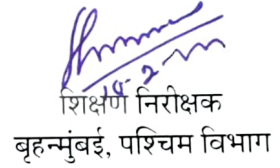 शिक्षण निरीक्षक
बृहन्मुंबई, पश्चिम विभाग